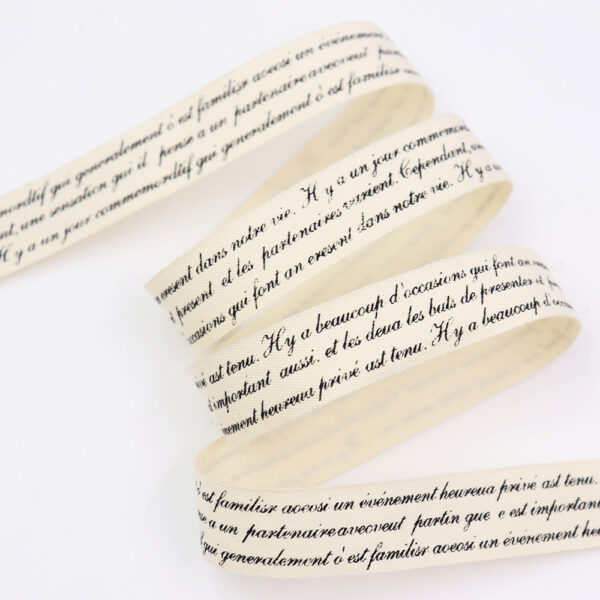 mordtif qui generalement ò est familisr aoeosi un événeme
nt, une sensation qui il pense a un partenaireavecveut par
Hy a un jour commemordtif qui generalement ò est familisr
en eresent dans notre vie. Hy a un jour commemor
present et les partenaires varient. Cependant, un
occasions qui font an eresent dans notre vie. Hy a u
vé ast tenu. Hy a beaucoup d'occasions qui font an er
t important aussi. et les deua les buls de presenter et p
nement heureua privé ast tenu. Hy a beaucoup d'occa
ò est familisr aoeosi un événement heureua privé ast tenu.
se a un partenaireavecveut partin que c est important
qui generalement ò est familisr aoeosi un événement heu